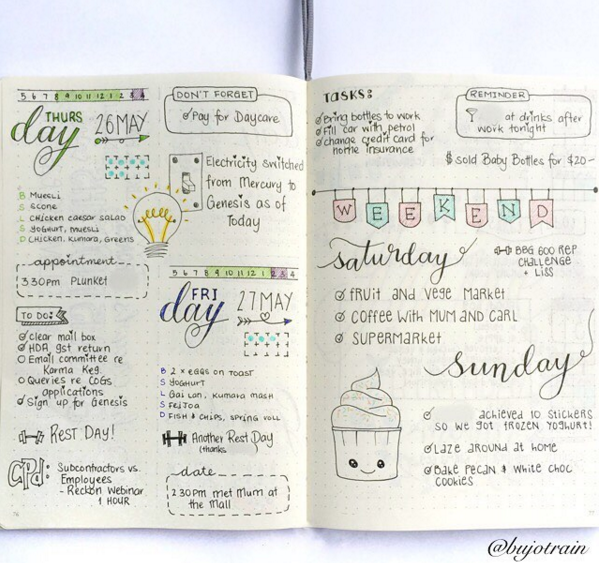 5 6 7 8 9 10 11 12 1 2 3 4
THURS
day
26 MAY
B MUESLI
S SCONE
L CHICKEN CAESAR SALAD
S YOGHURT, MUESLI
D CHICKEN, KUMARA, GREENS
appointment
3:30PM PLUNKET
TO DO:
Clear mail box
HDA gst return
Email committee re
Karma Keg.
Queries re COGS
applications
Sign up for Genesis
REST DAY!
CPD:
Subcontractors vs.
Employees
- Reckon Webinar
1 HOUR
76
DON'T FORGET
Pay for Daycare
Electricity switched
from Mercury to
Genesis as of
Today
5 6 7 8 9 10 11 12 1 2 3 4
FRI
day
27 MAY
B 2 x EGGS ON TOAST
S YOGHURT
L Gai Lan, kumara mash
S FeiJoa
D FISH & CHIPS, SPRING ROLL
Another Rest Day
(thanks
date
2:30pm met Mum at
the Mall
TASKS:
Bring bottles to work
Fill car with petrol
change credit card for
home insurance
REMINDER
at drinks after
work tonight
$ sold Baby Bottles for $20-
WEEKEND
saturday
BBG 600 REP
CHALLENGE
+ LISS
FRUIT AND VEGE MARKET
COFFEE WITH MUM AND CARL
SUPERMARKET
sunday
achieved 10 stickers
so we got frozen yoghurt!
LAZE around at home
Bake Pecan & white choc
cookies
77
@bujotrain